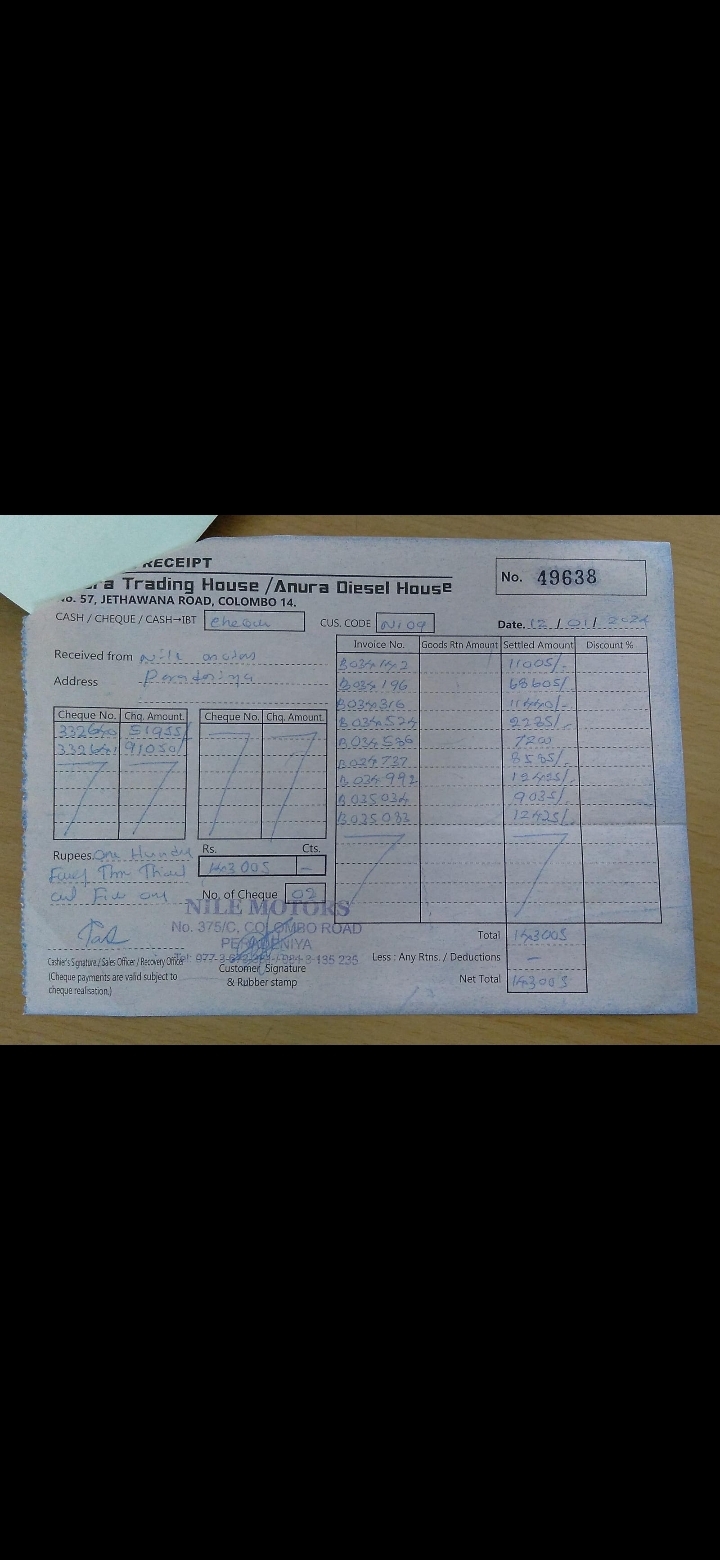 RECEIPT
No. 49638
ra Trading House / Anura Diesel House
No. 57, JETHAWANA ROAD, COLOMBO 14.
CASH / CHEQUE / CASH→IBT cheque CUS. CODE Ni09 Date. 12 / 01 / 2024
Received from Nile motors
Address Peradeniya
Invoice No. Goods Rtn Amount Settled Amount Discount %
B034142 11005/-
B034196 68605/-
B034316 11440/-
B034524 2285/-
B034586 7200
B034737 8585/-
B034992 12425/-
B035034 9035/-
B035033 12425/-
Cheque No. Chq. Amount. Cheque No. Chq. Amount.
332640 51955/
332641 91050/
Rupees. One Hundred
Rs. Cts.
143005 –
and Five only
No. of Cheque 02
NILE MOTORS
No. 375/C, COLOMBO ROAD
PERADENIYA
Cashier's Signature / Sales Officer / Recovery Officer
(Cheque payments are valid subject to
cheque realisation.)
Customer Signature
& Rubber stamp
Total 143005
Less : Any Rtns. / Deductions –
Net Total 143005